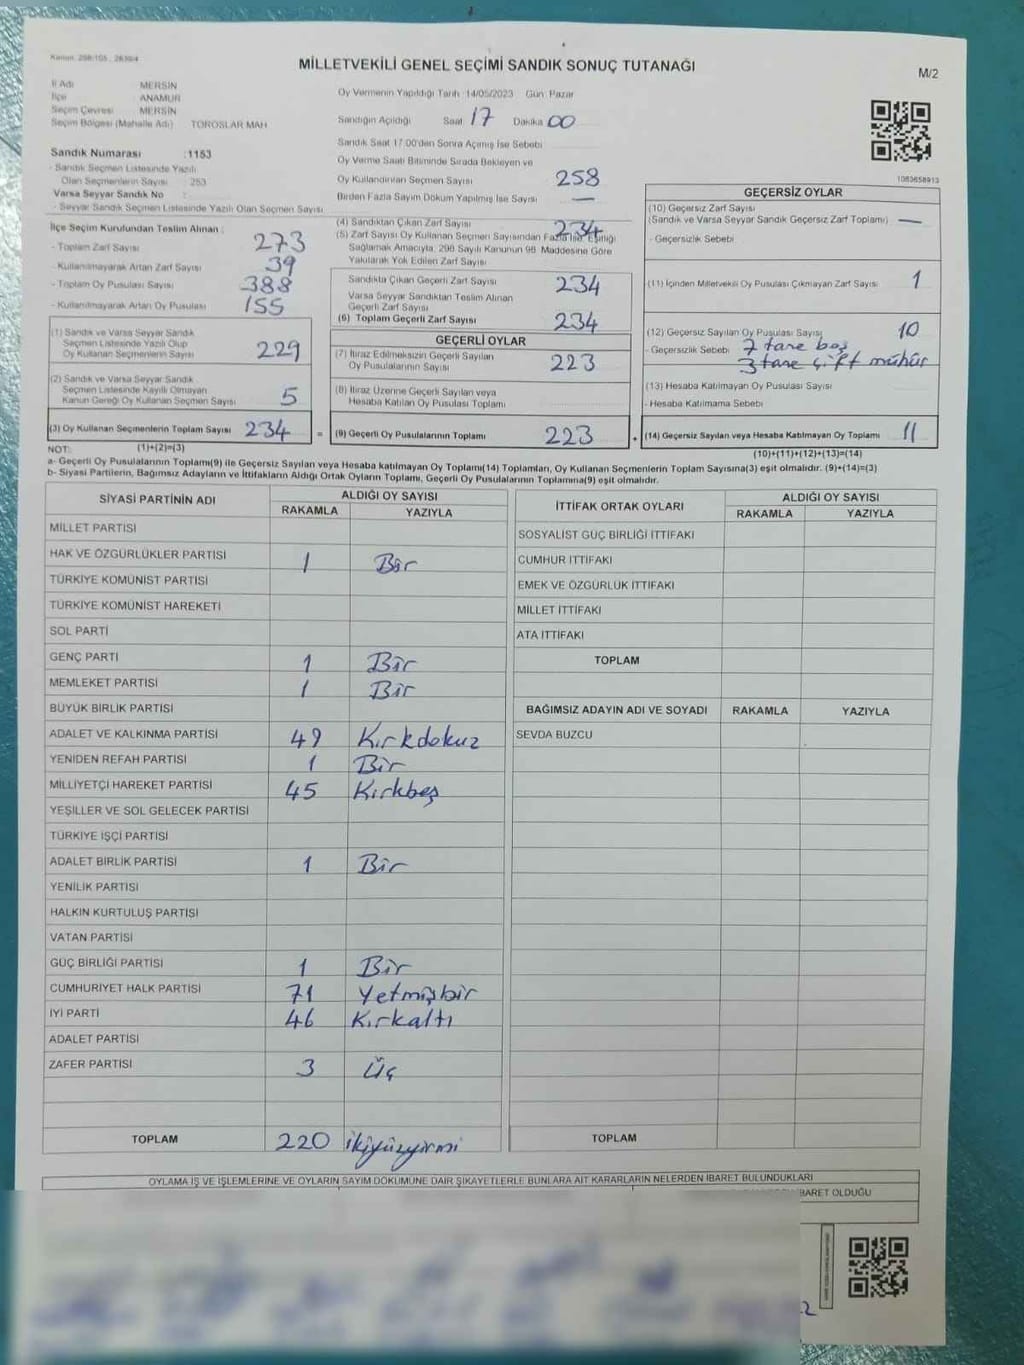 Kanun: 298/105 , 2839/4
MİLLETVEKİLİ GENEL SEÇİMİ SANDIK SONUÇ TUTANAĞI
M/2
İl Adı : MERSİN
İlçe : ANAMUR
Seçim Çevresi : MERSİN
Seçim Bölgesi (Mahalle Adı) : TOROSLAR MAH
Sandık Numarası : 1153
- Sandık Seçmen Listesinde Yazılı
Olan Seçmenlerin Sayısı : 253
Varsa Seyyar Sandık No :
- Seyyar Sandık Seçmen Listesinde Yazılı Olan Seçmen Sayısı
Oy Vermenin Yapıldığı Tarih :14/05/2023 Gün: Pazar
Sandığın Açıldığı Saat 17 Dakika 00
Sandık Saat 17.00'den Sonra Açılmış İse Sebebi
Oy Verme Saati Bitiminde Sırada Bekleyen ve
Oy Kullandırılan Seçmen Sayısı 258
Birden Fazla Sayım Döküm Yapılmış İse Sayısı —
1083658913
İlçe Seçim Kurulundan Teslim Alınan :
- Toplam Zarf Sayısı 273
- Kullanılmayarak Artan Zarf Sayısı 39
- Toplam Oy Pusulası Sayısı 388
- Kullanılmayarak Artan Oy Pusulası 155
(1) Sandık ve Varsa Seyyar Sandık
Seçmen Listesinde Yazılı Olup
Oy Kullanan Seçmenlerin Sayısı 229
(2) Sandık ve Varsa Seyyar Sandık
Seçmen Listesinde Kayıtlı Olmayan
Kanun Gereği Oy Kullanan Seçmen Sayısı 5
(3) Oy Kullanan Seçmenlerin Toplam Sayısı 234 =
(4) Sandıktan Çıkan Zarf Sayısı 234
(5) Zarf Sayısı Oy Kullanan Seçmen Sayısından Fazla İse, Eşitliği
Sağlamak Amacıyla, 298 Sayılı Kanunun 98. Maddesine Göre
Yakılarak Yok Edilen Zarf Sayısı
Sandıkta Çıkan Geçerli Zarf Sayısı 234
Varsa Seyyar Sandıktan Teslim Alınan
Geçerli Zarf Sayısı
(6) Toplam Geçerli Zarf Sayısı 234
GEÇERLİ OYLAR
(7) İtiraz Edilmeksizin Geçerli Sayılan
Oy Pusulalarının Sayısı 223
(8) İtiraz Üzerine Geçerli Sayılan veya
Hesaba Katılan Oy Pusulası Toplamı
(9) Geçerli Oy Pusulalarının Toplamı 223 +
GEÇERSİZ OYLAR
(10) Geçersiz Zarf Sayısı
(Sandık ve Varsa Seyyar Sandık Geçersiz Zarf Toplamı) —
- Geçersizlik Sebebi
(11) İçinden Milletvekili Oy Pusulası Çıkmayan Zarf Sayısı 1
(12) Geçersiz Sayılan Oy Pusulası Sayısı 10
- Geçersizlik Sebebi 7 tane boş
3 tane çift mühür
(13) Hesaba Katılmayan Oy Pusulası Sayısı
- Hesaba Katılmama Sebebi
(14) Geçersiz Sayılan veya Hesaba Katılmayan Oy Toplamı 11
NOT: (1)+(2)=(3)
(10)+(11)+(12)+(13)=(14)
a- Geçerli Oy Pusulalarının Toplamı(9) ile Geçersiz Sayılan veya Hesaba katılmayan Oy Toplamı(14) Toplamları, Oy Kullanan Seçmenlerin Toplam Sayısına(3) eşit olmalıdır. (9)+(14)=(3)
b- Siyasi Partilerin, Bağımsız Adayların ve İttifakların Aldığı Ortak Oyların Toplamı, Geçerli Oy Pusulalarının Toplamına(9) eşit olmalıdır.
SİYASİ PARTİNİN ADI ALDIĞI OY SAYISI
RAKAMLA YAZIYLA
MİLLET PARTİSİ
HAK VE ÖZGÜRLÜKLER PARTİSİ 1 Bir
TÜRKİYE KOMÜNİST PARTİSİ
TÜRKİYE KOMÜNİST HAREKETİ
SOL PARTİ
GENÇ PARTİ 1 Bir
MEMLEKET PARTİSİ 1 Bir
BÜYÜK BİRLİK PARTİSİ
ADALET VE KALKINMA PARTİSİ 49 Kırkdokuz
YENİDEN REFAH PARTİSİ 1 Bir
MİLLİYETÇİ HAREKET PARTİSİ 45 Kırkbeş
YEŞİLLER VE SOL GELECEK PARTİSİ
TÜRKİYE İŞÇİ PARTİSİ
ADALET BİRLİK PARTİSİ 1 Bir
YENİLİK PARTİSİ
HALKIN KURTULUŞ PARTİSİ
VATAN PARTİSİ
GÜÇ BİRLİĞİ PARTİSİ 1 Bir
CUMHURİYET HALK PARTİSİ 71 Yetmişbir
İYİ PARTİ 46 Kırkaltı
ADALET PARTİSİ
ZAFER PARTİSİ 3 Üç
TOPLAM 220 ikiyüzyirmi
İTTİFAK ORTAK OYLARI ALDIĞI OY SAYISI
RAKAMLA YAZIYLA
SOSYALİST GÜÇ BİRLİĞİ İTTİFAKI
CUMHUR İTTİFAKI
EMEK VE ÖZGÜRLÜK İTTİFAKI
MİLLET İTTİFAKI
ATA İTTİFAKI
TOPLAM
BAĞIMSIZ ADAYIN ADI VE SOYADI RAKAMLA YAZIYLA
SEVDA BUZCU
TOPLAM
OYLAMA İŞ VE İŞLEMLERİNE VE OYLARIN SAYIM DÖKÜMÜNE DAİR ŞİKAYETLERLE BUNLARA AİT KARARLARIN NELERDEN İBARET BULUNDUKLARI
İBARET OLDUĞU